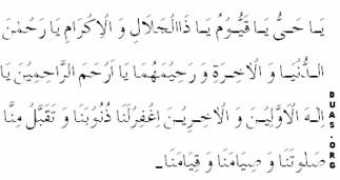 يَا حَىُّ يَا قَيُّوْمُ يَا ذَاالْجَلَالِ وَ الْاِكْرَامِ يَا رَحْمٰنَ
الدُّنْيَا وَ الْاٰخِرَةِ وَ رَحِيْمَهُمَا يَا اَرْحَمَ الرَّاحِمِيْنَ يَا
اِلٰهَ الْاَوَّلِيْنَ وَ الْاٰخِرِيْنَ اِغْفِرْلَنَا ذُنُوْبَنَا وَ تَقَبَّلْ مِنَّا
صَلٰوتَنَا وَ صِيَامَنَا وَ قِيَامَنَا۔
DUAS.ORG